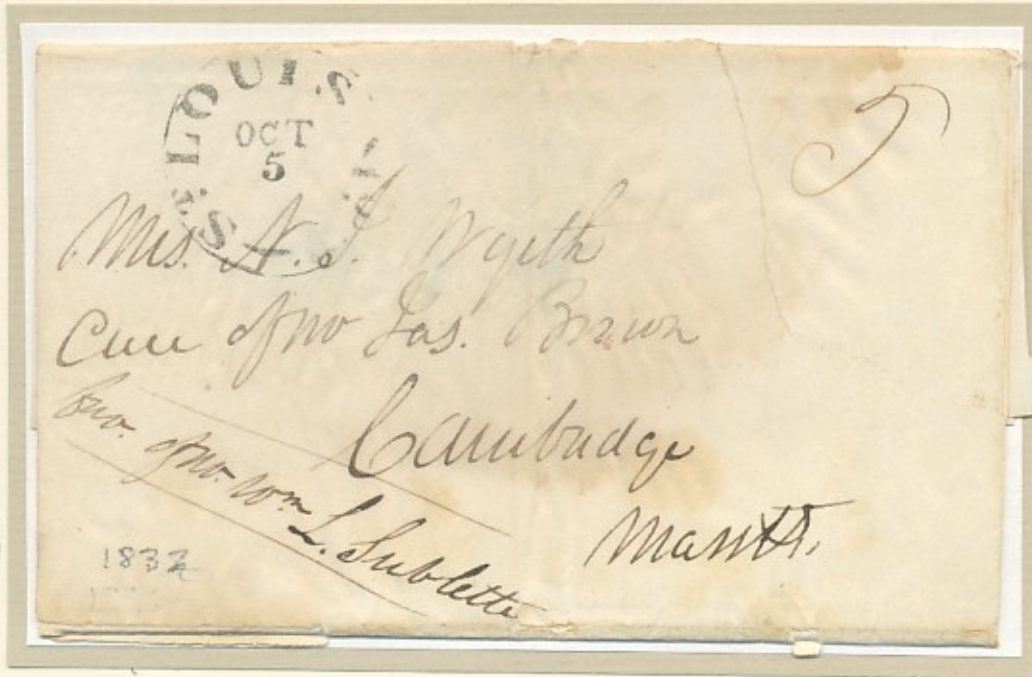 ST. LOUIS
OCT
5
Mrs. N. J. Wyeth
Care of Mr Jas. Brown
Cambridge
Fav. of Mr. Wm L. Sublette
1832